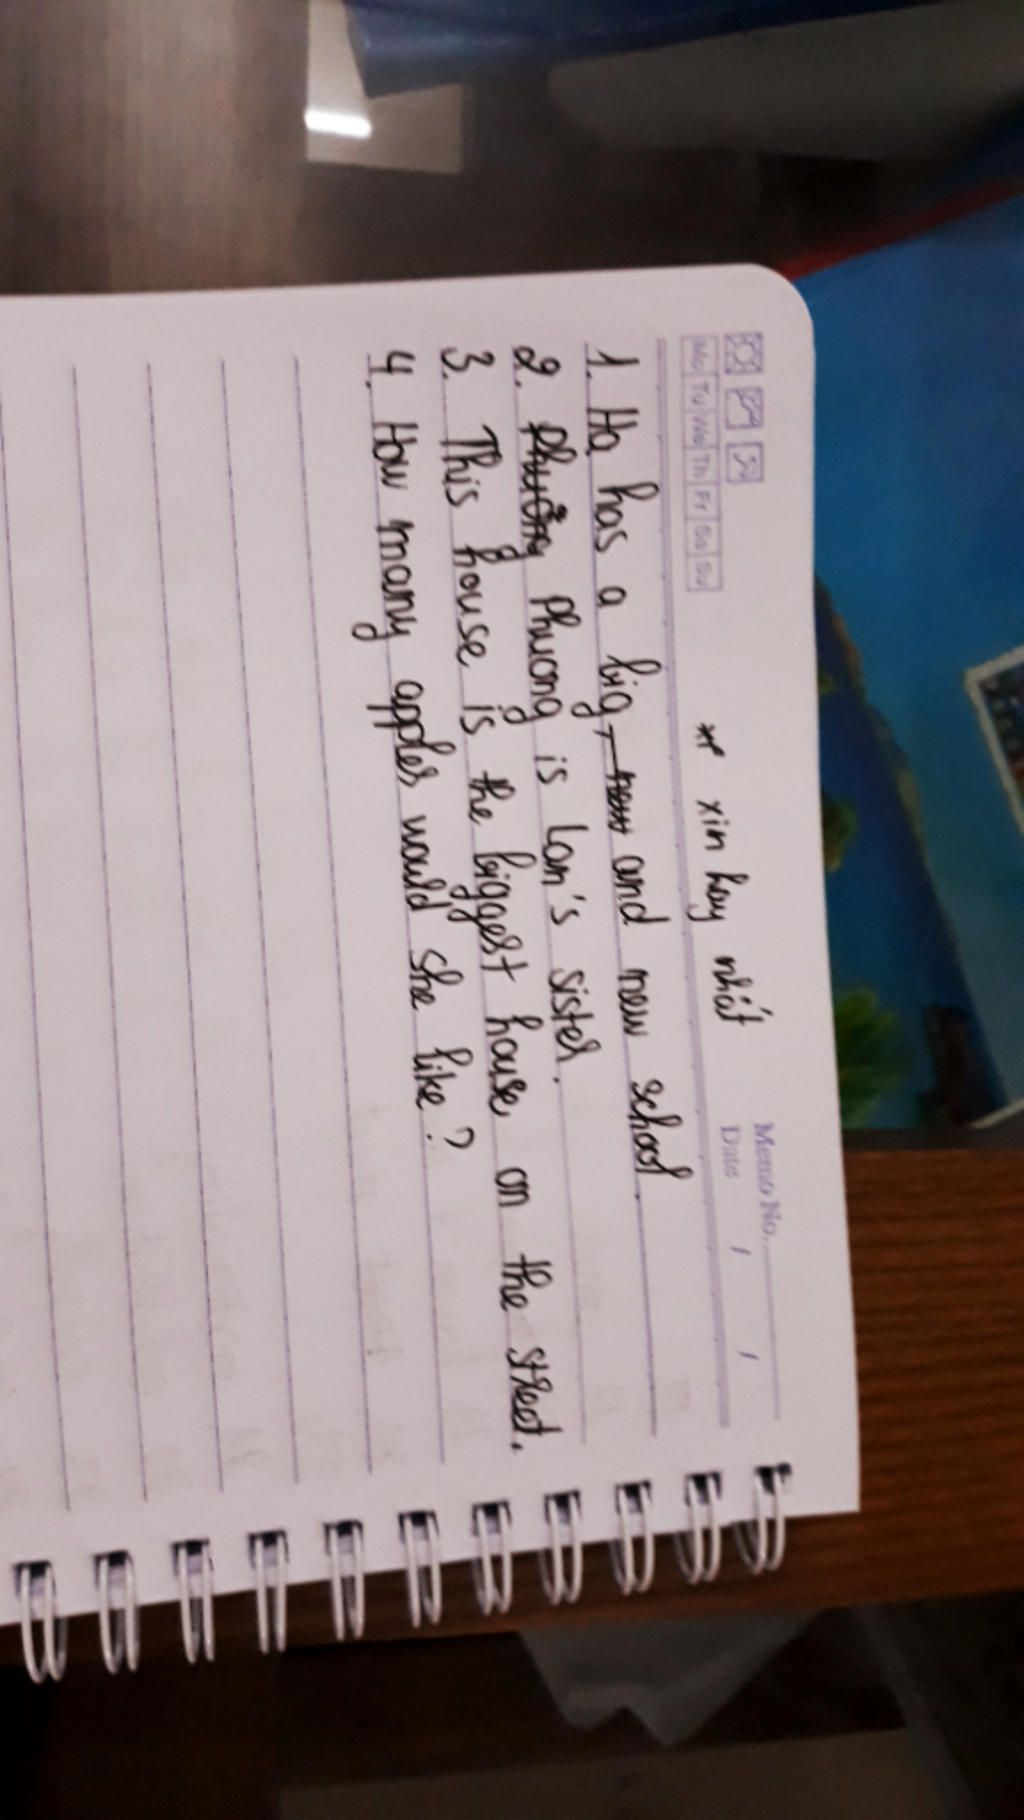 Memo No.
Mo Tu We Th Fr Sa Su
* xin hay nhất
Date / /
1. Ha has a big, new and new school.
2. Phương Phuong is Lan's sister.
3. This house is the biggest house on the street.
4. How many apples would she like?